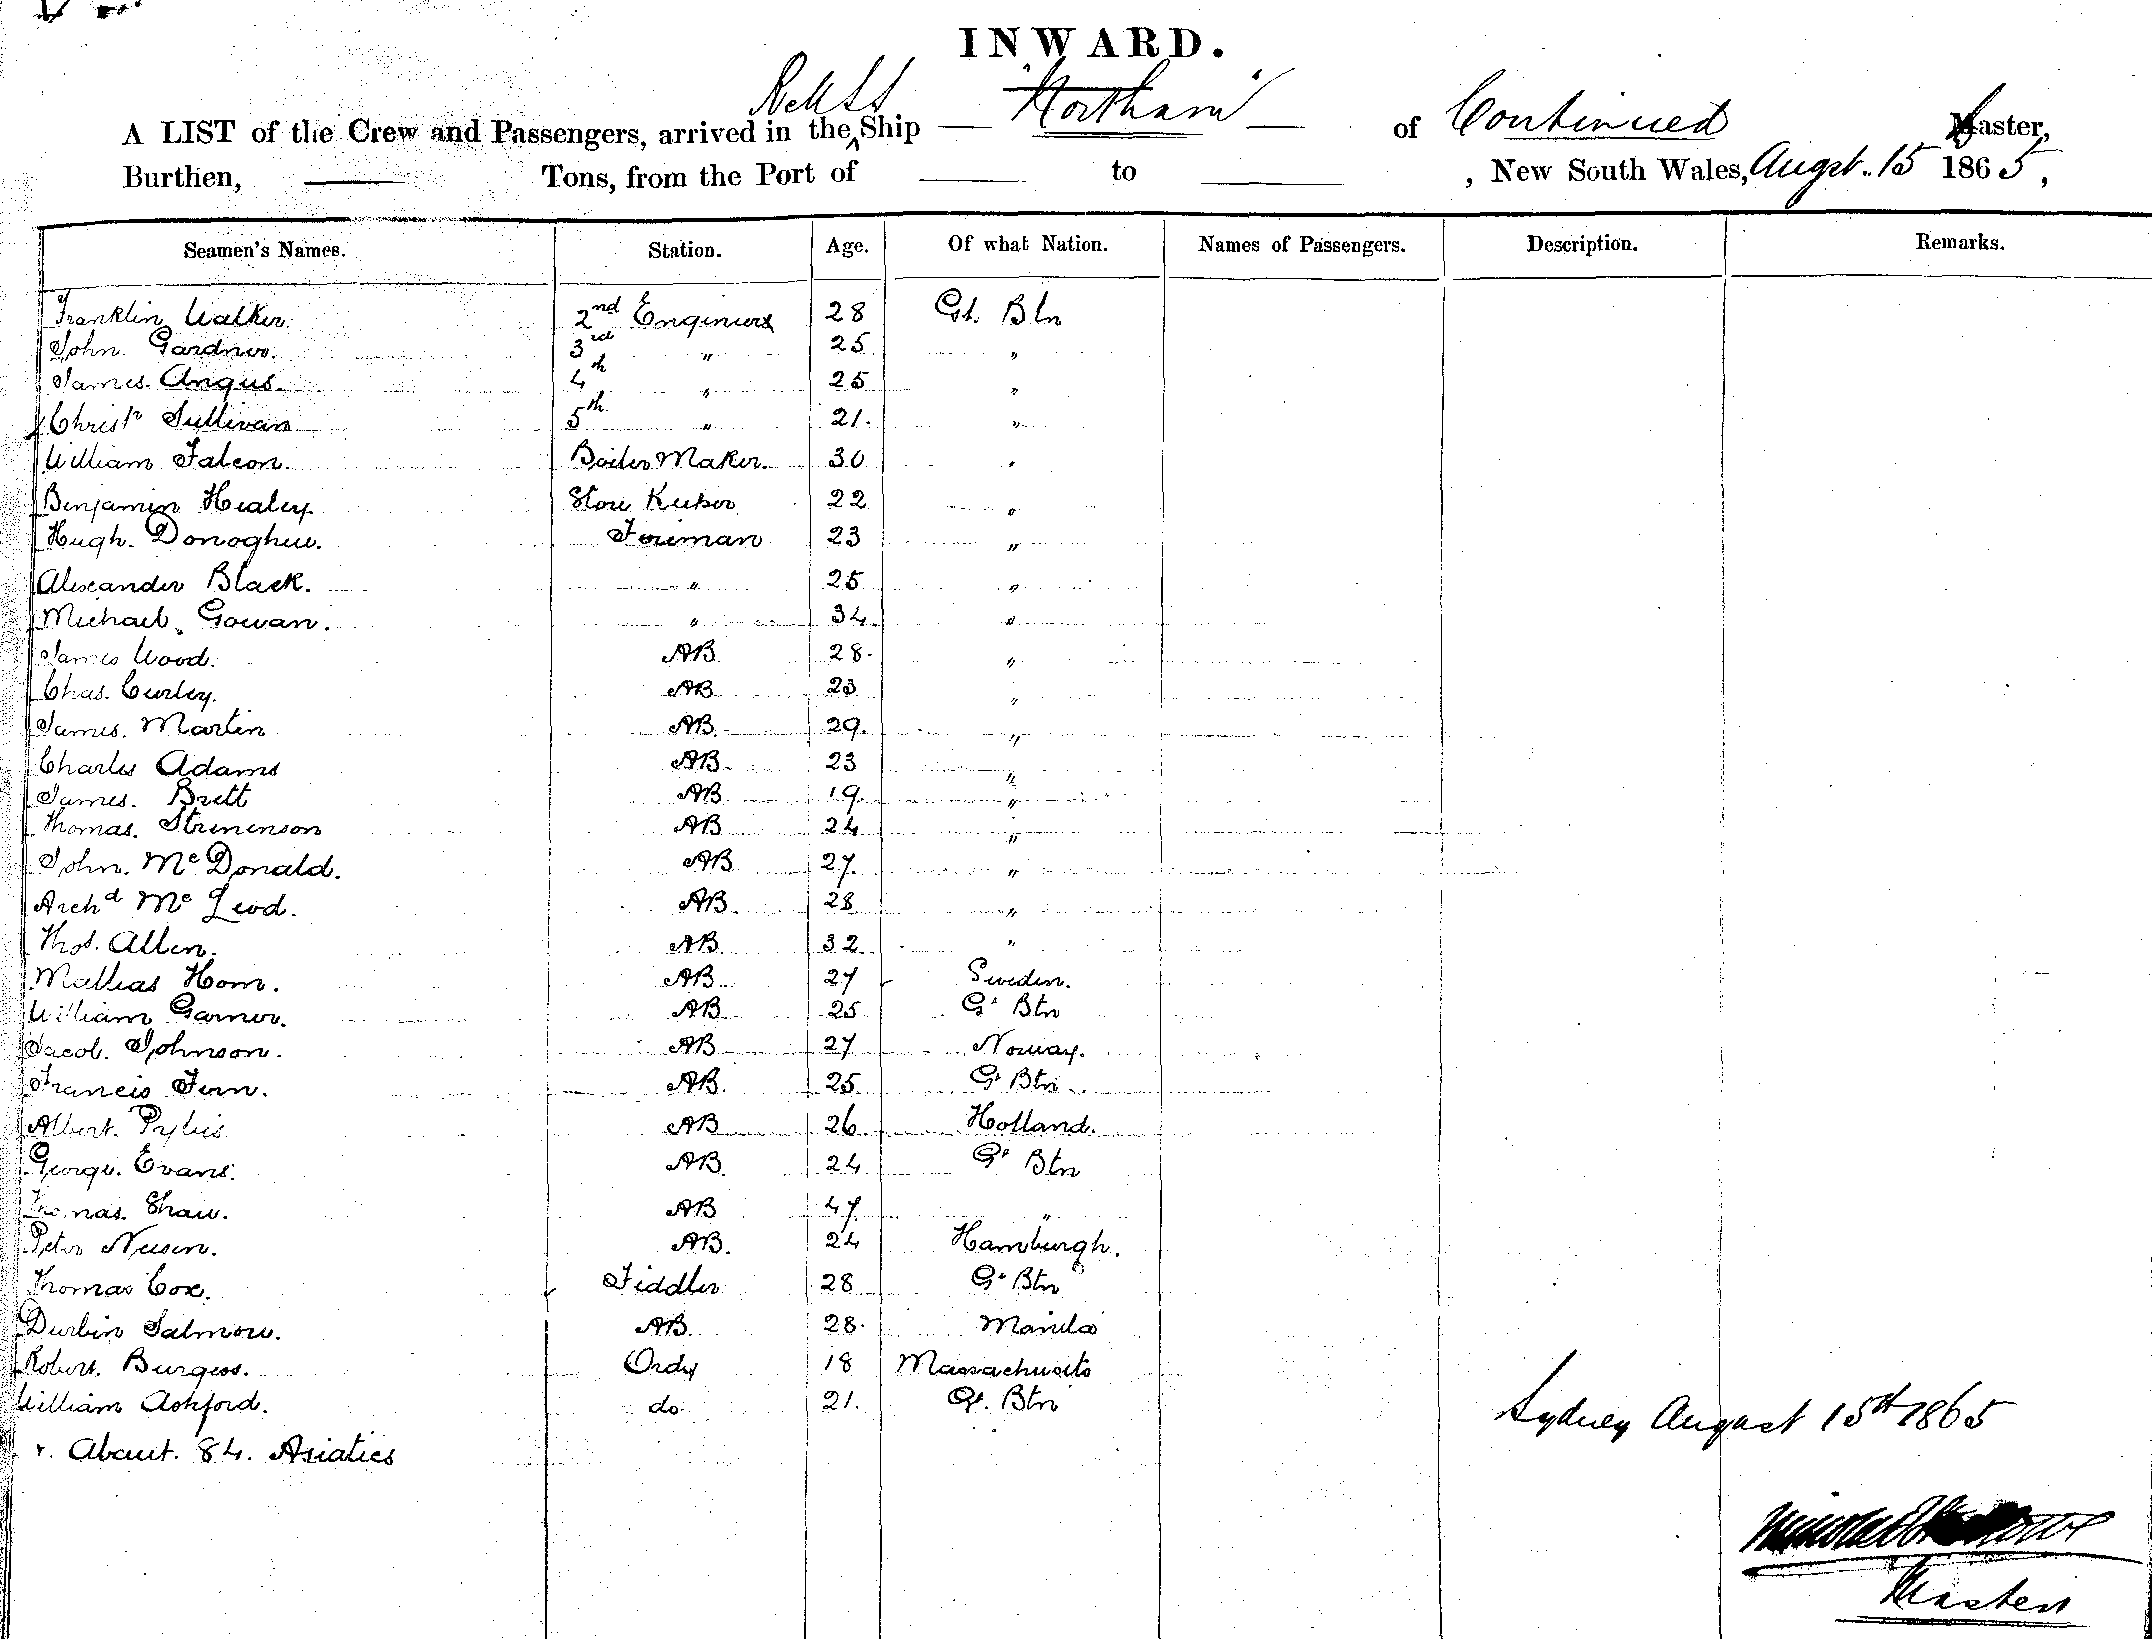 INWARD.
A LIST of the Crew and Passengers, arrived in the RMSS Ship — "Northam" — of Continued Master,
Burthen, — Tons, from the Port of — to — , New South Wales, Augst. 15 1865,
Seamen's Names. Station. Age. Of what Nation. Names of Passengers. Description. Remarks.
Franklin Walker 2nd Engineers 28 Gt. Btn
John Gardner. 3rd " 25 "
James Angus. 4th " 25 "
Christr Sullivan 5th " 21. "
William Falcon. Boiler Maker. 30 "
Benjamin Healey Store Keeper 22 "
Hugh. Donoghue. Foreman 23 "
Alexander Black. " 25 "
Michael Gowan. " 34. "
James Wood. AB 28. "
Chas. Curley. AB 23 "
James. Martin AB. 29. "
Charles Adams AB. 23 "
James. Brett AB 19. "
Thomas. AB 24 "
John. Mc Donald. AB 27. "
Archd Mc Leod. AB. 28 "
Thos. Allen. AB 32 "
Mathias Hom. AB 27 Sweden.
William Garner. AB 25 Gt Btn
Jacob. Johnson. AB 27 Norway.
Francis Fern. AB. 25 Gt Btn
Albert. AB 26 Holland.
George. Evans. AB 24 Gt Btn
Thomas. Shaw. AB 47. "
Peter AB. 24 Hamburgh.
Thomas Cox. Fiddler 28 Gt Btn
Durbin Salmon. AB. 28. Manila
Robert. Burgess. Ordy 18 Massachusets
William Ashford. do 21. Gt. Btn
Sydney August 15th 1865
About. 84. Asiatics
Master